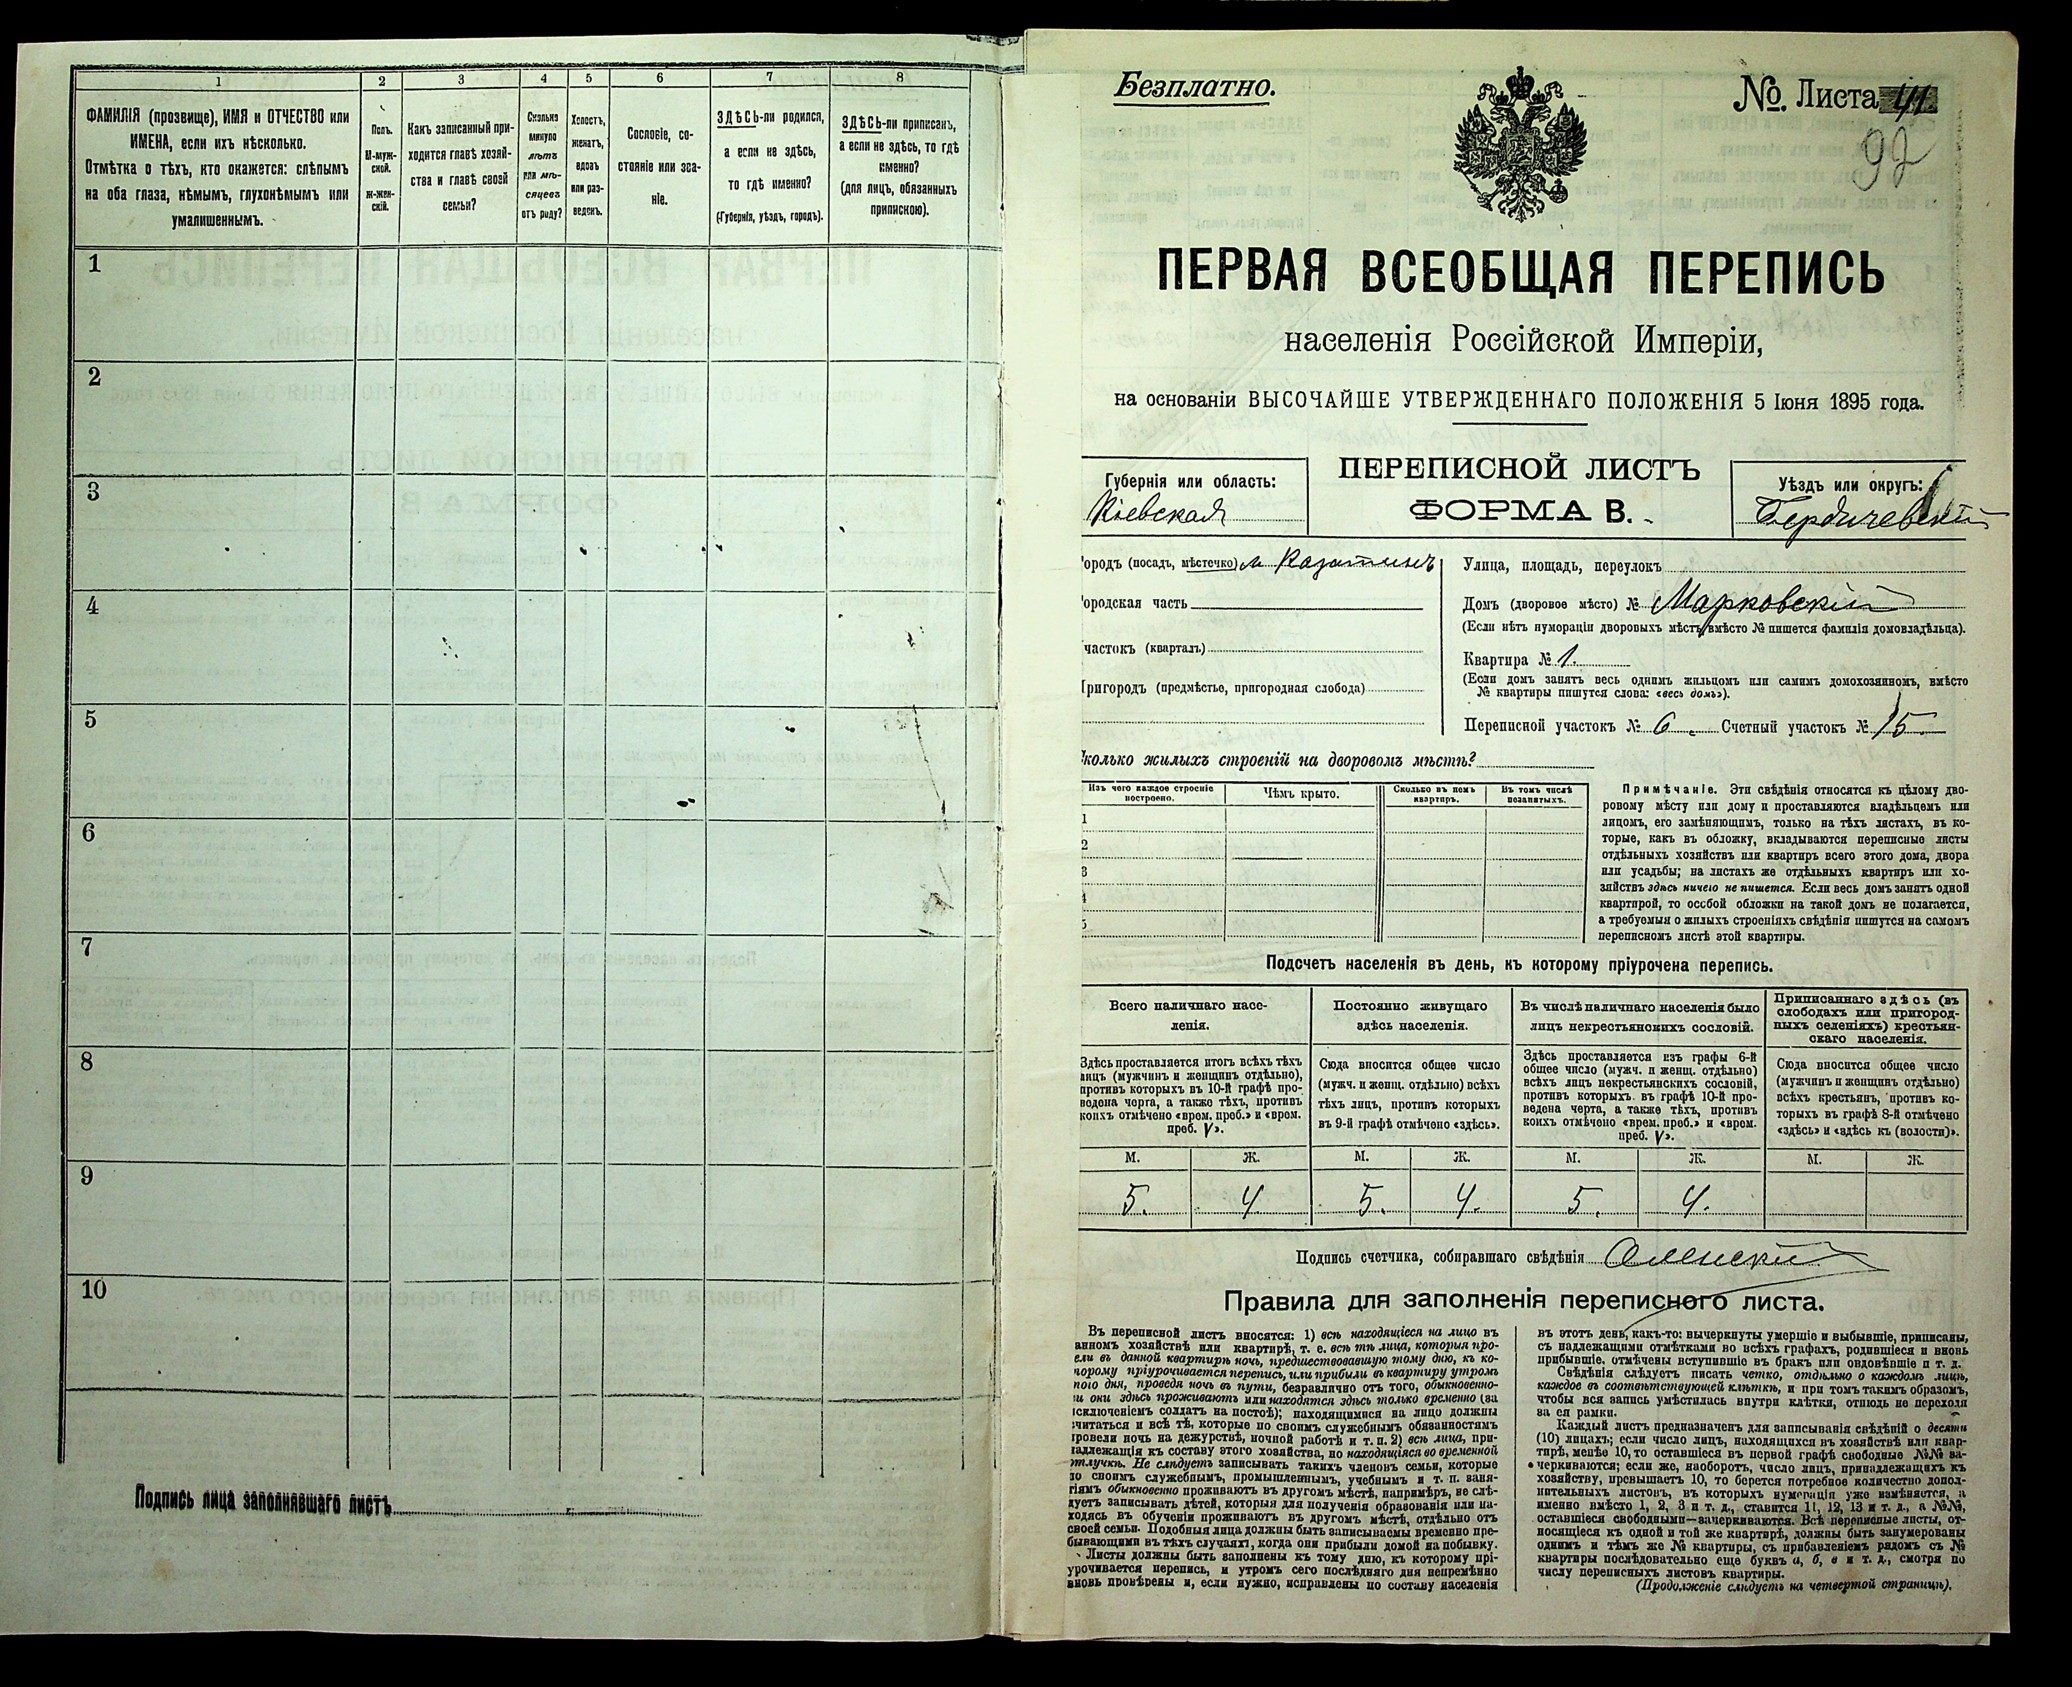 1 2 3 4 5 6 7 8
ФАМИЛІЯ (прозвище), ИМЯ и ОТЧЕСТВО или
ИМЕНА, если ихъ нѣсколько.
Отмѣтка о тѣхъ, кто окажется: слѣпымъ
на оба глаза, нѣмымъ, глухонѣмымъ или
умалишеннымъ.
Полъ.
М-муж-
ской.
Ж-жен-
скій.
Какъ записанный при-
ходится главѣ хозяй-
ства и главѣ своей
семьи?
Сколько
минуло
лѣтъ
или мѣ-
сяцевъ
отъ роду?
Холостъ,
женатъ,
вдовъ
или раз-
веденъ.
Сословіе, со-
стояніе или зва-
ніе.
ЗДѢСЬ-ли родился,
а если не здѣсь,
то гдѣ именно?
(Губернія, уѣздъ, городъ).
ЗДѢСЬ-ли приписанъ,
а если не здѣсь, то гдѣ
именно?
(для лицъ, обязанныхъ
припискою).
1
2
3
4
5
6
7
8
9
10
Подпись лица заполнявшаго листъ
Безплатно.
№. Листа 41.
92
ПЕРВАЯ ВСЕОБЩАЯ ПЕРЕПИСЬ
населенія Россійской Имперіи,
на основаніи ВЫСОЧАЙШЕ УТВЕРЖДЕННАГО ПОЛОЖЕНІЯ 5 Іюня 1895 года.
Губернія или область:
Кіевская
ПЕРЕПИСНОЙ ЛИСТЪ
ФОРМА В.
Уѣздъ или округъ:
Бердичевскій
ородъ (посадъ, мѣстечко) м. Казатинъ
ородская часть
частокъ (кварталъ)
ригородъ (предмѣстье, пригородная слобода)
Улица, площадь, переулокъ
Домъ (дворовое мѣсто) № Марковскій
(Если нѣтъ нумораціи дворовыхъ мѣстъ, вмѣсто № пишется фамилія домовладѣльца).
Квартира № 1.
(Если домъ занятъ весь однимъ жильцомъ или самимъ домохозяиномъ, вмѣсто
№ квартиры пишутся слова: «весь домъ»).
Переписной участокъ № 6. Счетный участокъ № 15
колько жилыхъ строеній на дворовомъ мѣстѣ?
Изъ чего каждое строеніе
построено.
Чѣмъ крыто.
Сколько въ немъ
квартиръ.
Въ томъ числѣ
незанятыхъ.
1
2
3
4
5
Примѣчаніе. Эти свѣдѣнія относятся къ цѣлому дво-
ровому мѣсту или дому и проставляются владѣльцемъ или
лицомъ, его замѣняющимъ, только на тѣхъ листахъ, въ ко-
торые, какъ въ обложку, вкладываются переписные листы
отдѣльныхъ хозяйствъ или квартиръ всего этого дома, двора
или усадьбы; на листахъ же отдѣльныхъ квартиръ или хо-
зяйствъ здѣсь ничего не пишется. Если весь домъ занятъ одной
квартирой, то особой обложки на такой домъ не полагается,
а требуемыя о жилыхъ строеніяхъ свѣдѣнія пишутся на самомъ
переписномъ листѣ этой квартиры.
Подсчетъ населенія въ день, къ которому пріурочена перепись.
Всего наличнаго насе-
ленія.
Постоянно живущаго
здѣсь населенія.
Въ числѣ наличнаго населенія было
лицъ некрестьянскихъ сословій.
Приписаннаго здѣсь (въ
слободахъ или пригород-
ныхъ селеніяхъ) крестьян-
скаго населенія.
Здѣсь проставляется итогъ всѣхъ тѣхъ
лицъ (мужчинъ и женщинъ отдѣльно),
противъ которыхъ въ 10-й графѣ про-
ведена черта, а также тѣхъ, противъ
коихъ отмѣчено «врем. преб.» и «врем.
преб. V».
Сюда вносится общее число
(мужч. и женщ. отдѣльно) всѣхъ
тѣхъ лицъ, противъ которыхъ
въ 9-й графѣ отмѣчено «здѣсь».
Здѣсь проставляется изъ графы 6-й
общее число (мужч. и женщ. отдѣльно)
всѣхъ лицъ некрестьянскихъ сословій,
противъ которыхъ въ графѣ 10-й про-
ведена черта, а также тѣхъ, противъ
коихъ отмѣчено «врем. преб.» и «врем.
преб. V».
Сюда вносится общее число
(мужчинъ и женщинъ отдѣльно)
всѣхъ крестьянъ, противъ ко-
торыхъ въ графѣ 8-й отмѣчено
«здѣсь» и «здѣсь къ (волости)».
М. Ж. М. Ж. М. Ж. М. Ж.
5. 4 5. 4. 5. 4.
Подпись счетчика, собиравшаго свѣдѣнія
Правила для заполненія переписного листа.
Въ переписной листъ вносятся: 1) всѣ находящіеся на лицо въ
анномъ хозяйствѣ или квартирѣ, т. е. всѣ тѣ лица, которыя про-
ели въ данной квартирѣ ночь, предшествовавшую тому дню, къ ко-
торому пріурочивается перепись, или прибыли въ квартиру утромъ
того дня, проведя ночь въ пути, безразлично отъ того, обыкновенно-
и они здѣсь проживаютъ или находятся здѣсь только временно (за
сключеніемъ солдатъ на постоѣ); находящимися на лицо должны
читаться и всѣ тѣ, которые по своимъ служебнымъ обязанностямъ
ровели ночь на дежурствѣ, ночной работѣ и т. п. 2) всѣ лица, при-
адлежащія къ составу этого хозяйства, но находящіяся во временной
тлучкѣ. Не слѣдуетъ записывать такихъ членовъ семьи, которые
о своимъ служебнымъ, промышленнымъ, учебнымъ и т. п. заня-
іямъ обыкновенно проживаютъ въ другомъ мѣстѣ, напримѣръ, не слѣ-
дуетъ записывать дѣтей, которыя для полученія образованія или на-
ходясь въ обученіи проживаютъ въ другомъ мѣстѣ, отдѣльно отъ
своей семьи. Подобныя лица должны быть записываемы временно пре-
бывающими въ тѣхъ случаяхъ, когда они прибыли домой на побывку.
Листы должны быть заполнены къ тому дню, къ которому прі-
урочивается перепись, и утромъ сего послѣдняго дня непремѣнно
вновь провѣрены и, если нужно, исправлены по составу населенія
въ этотъ день, какъ-то: вычеркнуты умершіе и выбывшіе, приписаны,
съ надлежащими отмѣтками во всѣхъ графахъ, родившіеся и вновь
прибывшіе, отмѣчены вступившіе въ бракъ или овдовѣвшіе и т. д.
Свѣдѣнія слѣдуетъ писать четко, отдѣльно о каждомъ лицѣ,
каждое въ соотвѣтствующей клѣткѣ, и при томъ такимъ образомъ,
чтобы вся запись умѣстилась внутри клѣтки, отнюдь не переходя
за ея рамки.
Каждый листъ предназначенъ для записыванія свѣдѣній о десяти
(10) лицахъ; если число лицъ, находящихся въ хозяйствѣ или квар-
тирѣ, менѣе 10, то оставшіеся въ первой графѣ свободные №№ за-
черкиваются; если же, наоборотъ, число лицъ, принадлежащихъ къ
хозяйству, превышаетъ 10, то берется потребное количество допол-
нительныхъ листовъ, въ которыхъ нумерація уже измѣняется, а
именно вмѣсто 1, 2, 3 и т. д., ставится 11, 12, 13 и т. д., а №№,
оставшіеся свободными—зачеркиваются. Всѣ переписные листы, от-
носящіеся къ одной и той же квартирѣ, должны быть занумерованы
однимъ и тѣмъ же № квартиры, съ прибавленіемъ рядомъ съ №
квартиры послѣдовательно еще буквъ а, б, в и т. д., смотря по
числу переписныхъ листовъ квартиры.
(Продолженіе слѣдуетъ на четвертой страницѣ).